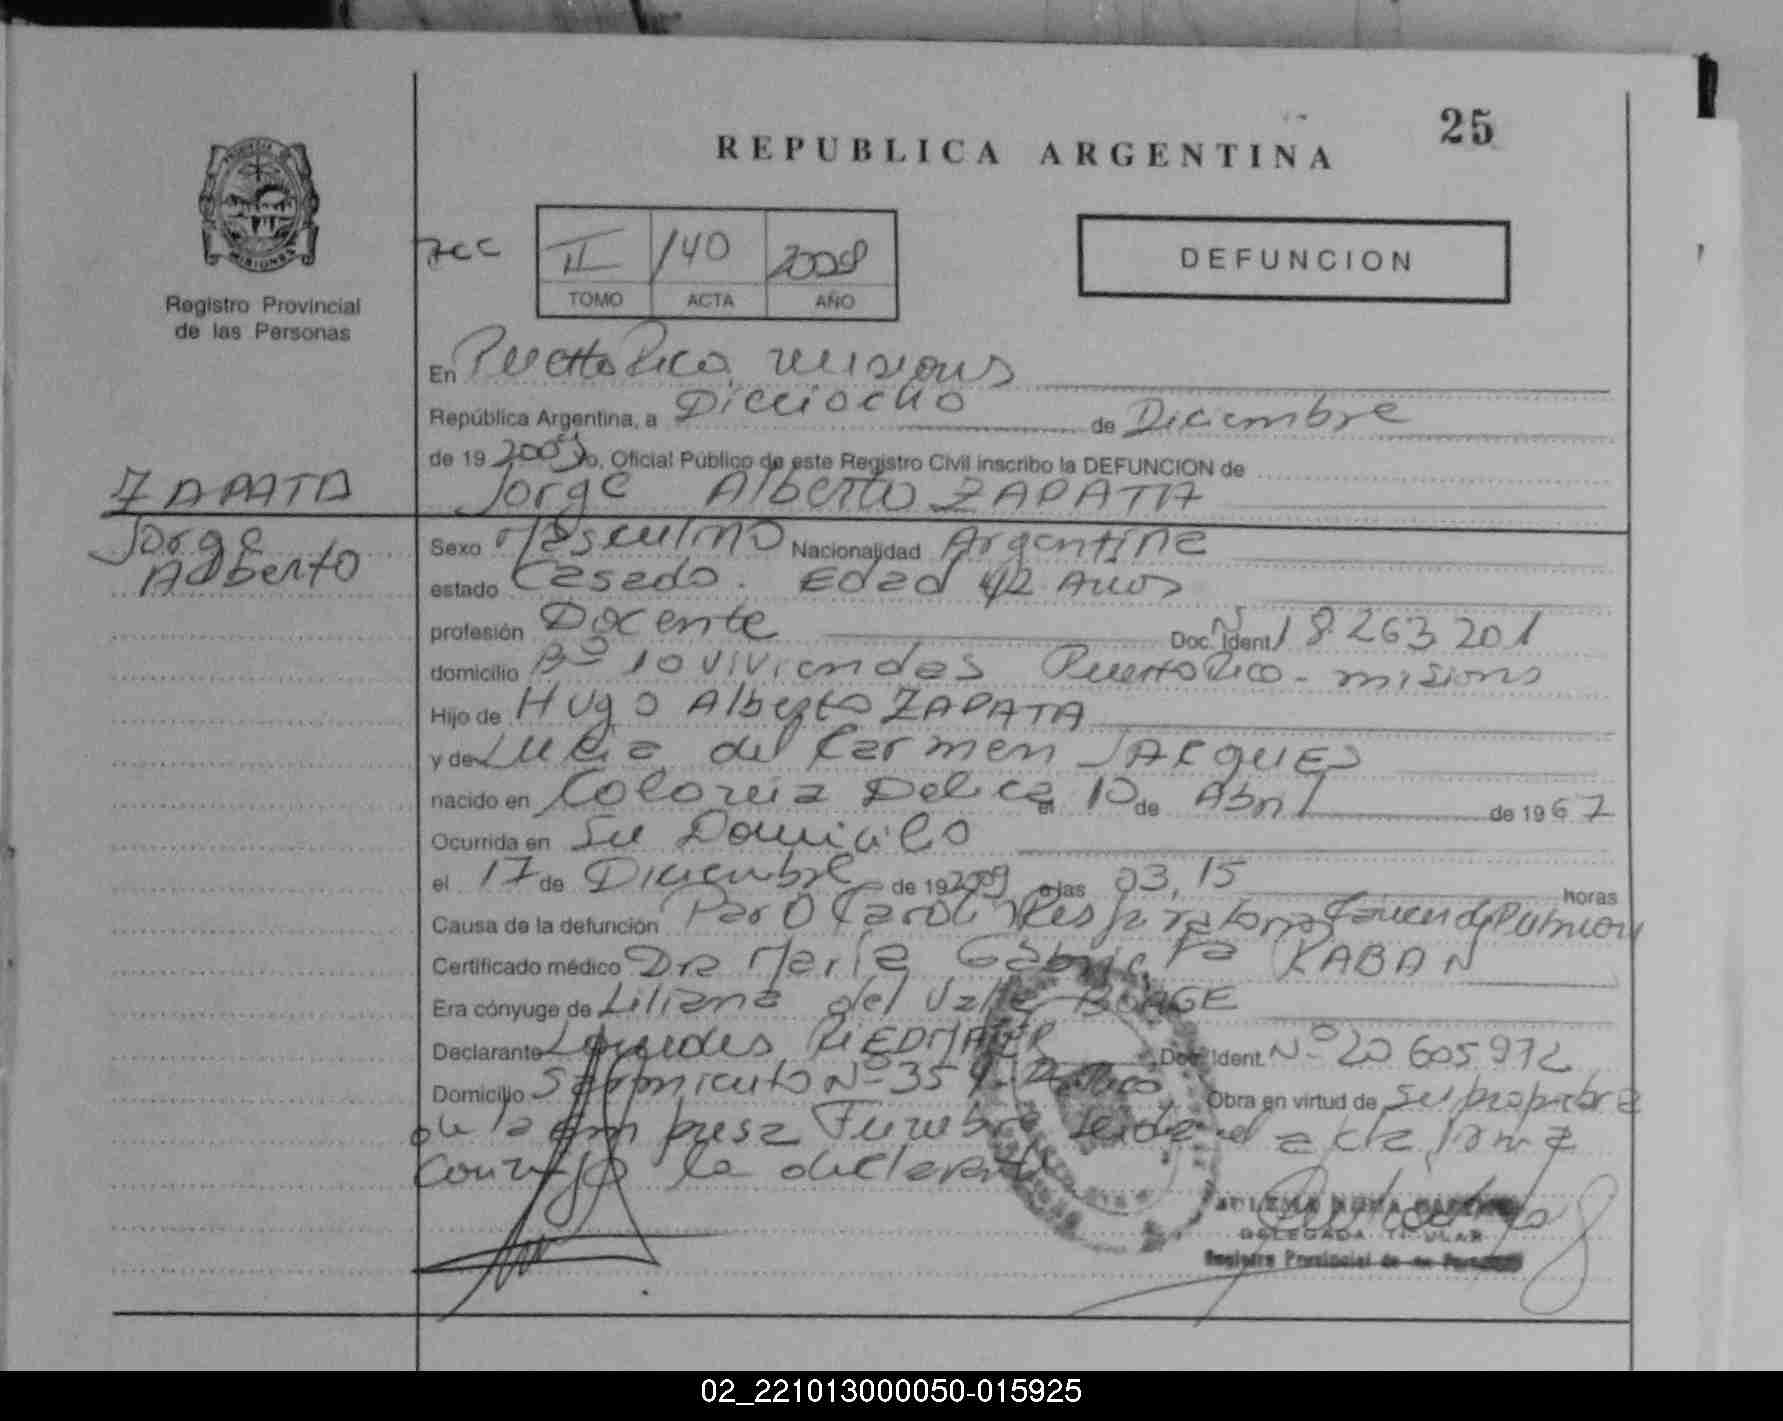 25
REPUBLICA ARGENTINA
PROVINCIA DE
MISIONES
Registro Provincial
de las Personas
II 140
TOMO ACTA AÑO
DEFUNCION
En Puerto Rico, misiones
República Argentina, a Dieciocho de Diciembre
de 19 2009 yo, Oficial Público de este Registro Civil inscribo la DEFUNCION de
Jorge Alberto ZAPATA
ZAPATA
Jorge
Alberto
Sexo Masculino Nacionalidad Argentina
estado Casado. Edad 42 Años
profesión Docente Doc. Ident. Nº 18.263.201
domicilio Bº 10 viviendas Puerto Rico - misiones
Hijo de Hugo Alberto ZAPATA
y de Lucia del Carmen JACQUES
nacido en Colonia Delicia el 10 de Abril de 1967
Ocurrida en Su Domicilio
el 17 de Diciembre de 19 2009 a las 03,15 horas
Causa de la defunción Paro Cardio Respiratorio, Cancer de Pulmon
Certificado médico Dra María Gabriela KABAN
Era cónyuge de Liliana del Valle BORGE
Declarante Lourdes RIEDMAIER Doc. Ident. Nº 20.605.972
Domicilio Sarmiento Nº 359 Obra en virtud de su propia
de la empresa Funebre leida el acta firma
conmigo la declarante
DELEGADA TITULAR
Registro Provincial de las Personas
02_221013000050-015925